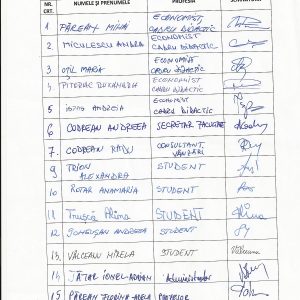 NR. CRT. NUMELE ȘI PRENUMELE PROFESIA
1 PÂREAN MIHAI ECONOMIST, CADRU DIDACTIC
2 NICULESCU ANDRA ECONOMIST CADRU DIDACTIC
3 OȚIL MARA ECONOMIST CADRU DIDACTIC
4 PITORAC RUXANDRA ECONOMIST CADRU DIDACTIC
5 ANDREIA ECONOMIST CADRU DIDACTIC
6 CODREAN ANDREEA SECRETAR FACULTATE
7. CODREAN RADU CONSULTANT VÂNZĂRI
9 TRION ALEXANDRA STUDENT
10 ROTAR ANAMARIA STUDENT
11 Alina STUDENT
12 ANDREEA STUDENT
13. VÂLCEANU MIRELA STUDENT
14 TĂTAR IONEL-ADRIAN Administrator
15 PÂREAN FLORINA-ADELA PROFESOR